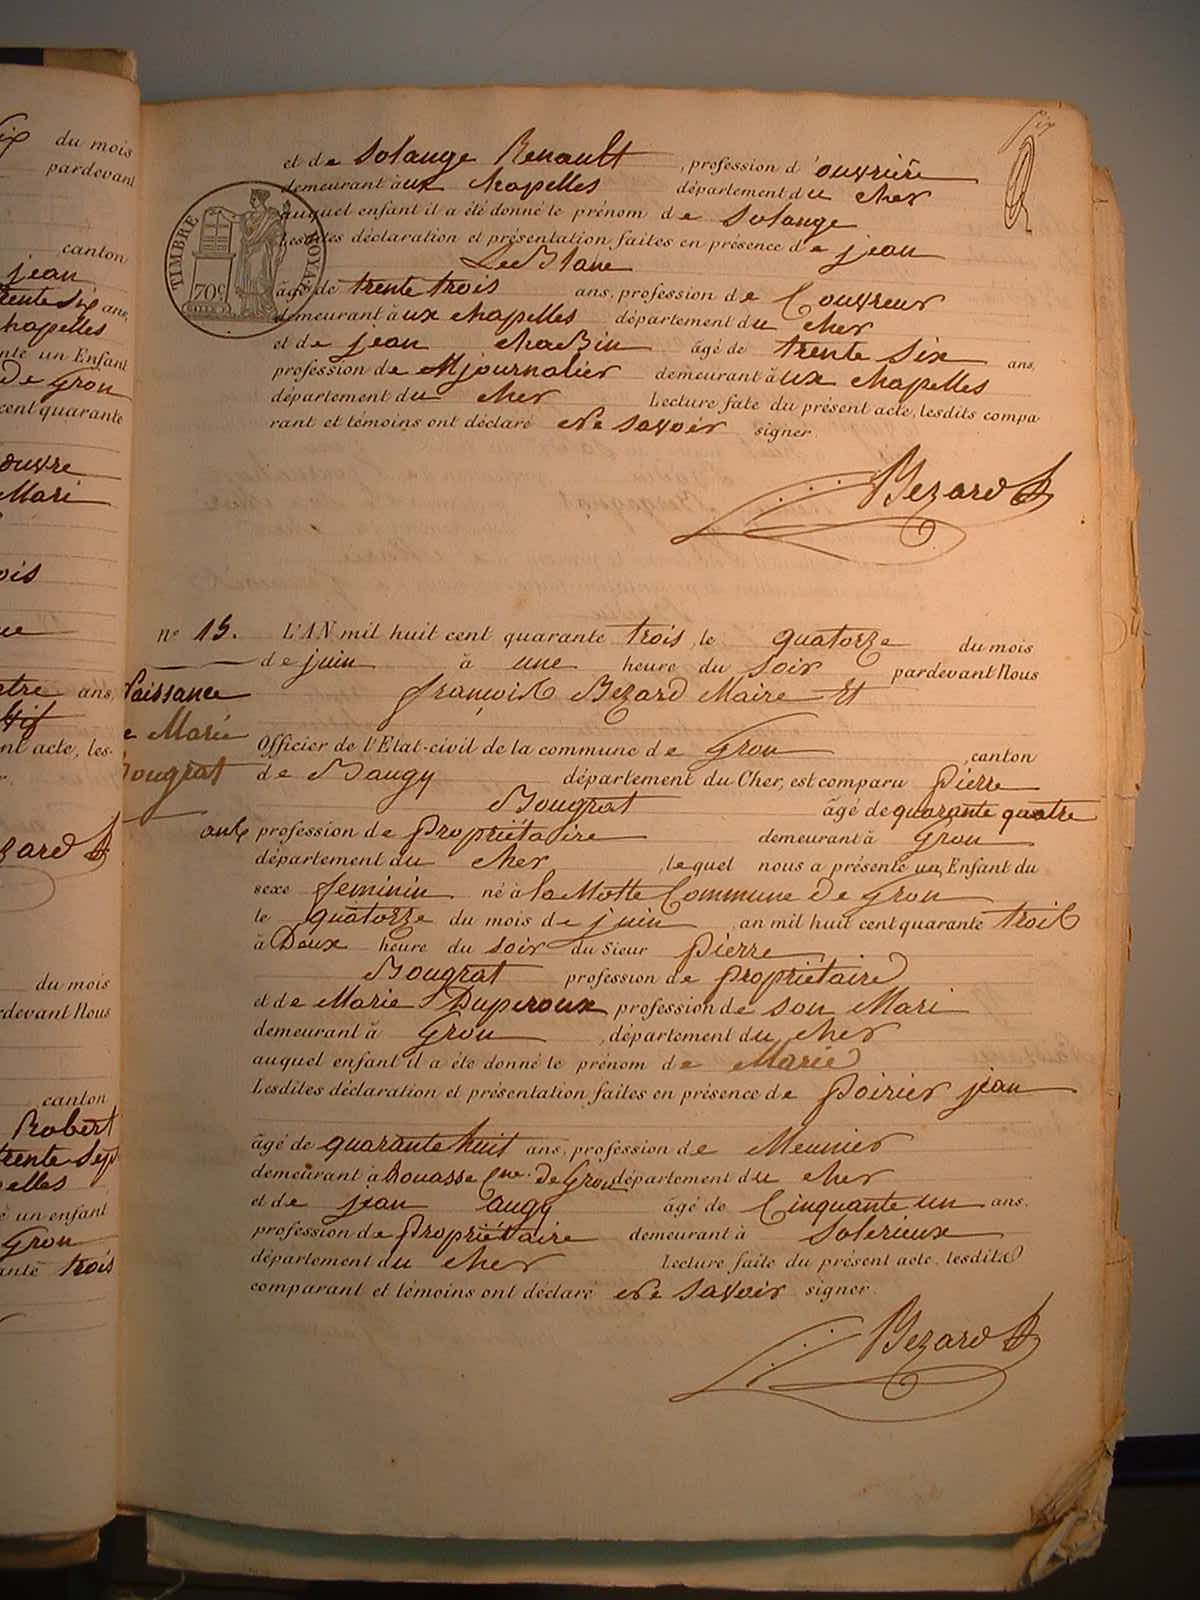 six du mois
pardevant
canton
jean
trente six ans,
chapelles
enté un Enfant
de Gron
cent quarante
ouvre
Mari
ois
ans,
nt acte, les-
zard
du mois
rdevant Nous
canton
Robert
trente sept
pelles
é un enfant
Gron
ante trois
et de Solange Renault , profession d'ouvrière
demeurant à ux chapelles département du cher
auquel enfant il a été donné le prénom de Solange
Lesdites déclaration et présentation faites en présence de jean
LeBlanc
âgé de trente trois ans, profession de Couvreur
demeurant à ux chapelles département du cher
et de jean chaBin âgé de trente six ans,
profession de journalier demeurant à ux chapelles
département du cher Lecture faite du présent acte, lesdits compa
rant et témoins ont déclaré Ne savoir signer.
TIMBRE ROYAL
70c
Bezard
n° 15. L'AN mil huit cent quarante trois, le quatorze du mois
de juin à une heure du soir pardevant Nous
françois Bezard Maire Et
Naissance
de Marie
Bougrat
Officier de l'Etat-civil de la commune de Gron , canton
de Baugy département du Cher, est comparu pierre
Bougrat âgé de quarante quatre
ans profession de propriétaire demeurant à Gron
département du cher , lequel nous a présenté un Enfant du
sexe feminin né à la Motte Commune de Gron
le quatorze du mois de juin an mil huit cent quarante trois
à Deux heure du soir du Sieur pierre
Bougrat profession de propriétaire
et de Marie Duperoux profession de son Mari
demeurant à Gron , département du cher
auquel enfant il a été donné le prénom de Marie
Lesdites déclaration et présentation faites en présence de poirier jean
âgé de quarante huit ans, profession de Meunier
demeurant à Bouasse Cne. de Gron département du cher
et de jean augy âgé de Cinquante un ans.
profession de propriétaire demeurant à Solerieux
département du cher Lecture faite du présent acte, lesdits
comparant et témoins ont déclaré Ne savoir signer.
Bezard